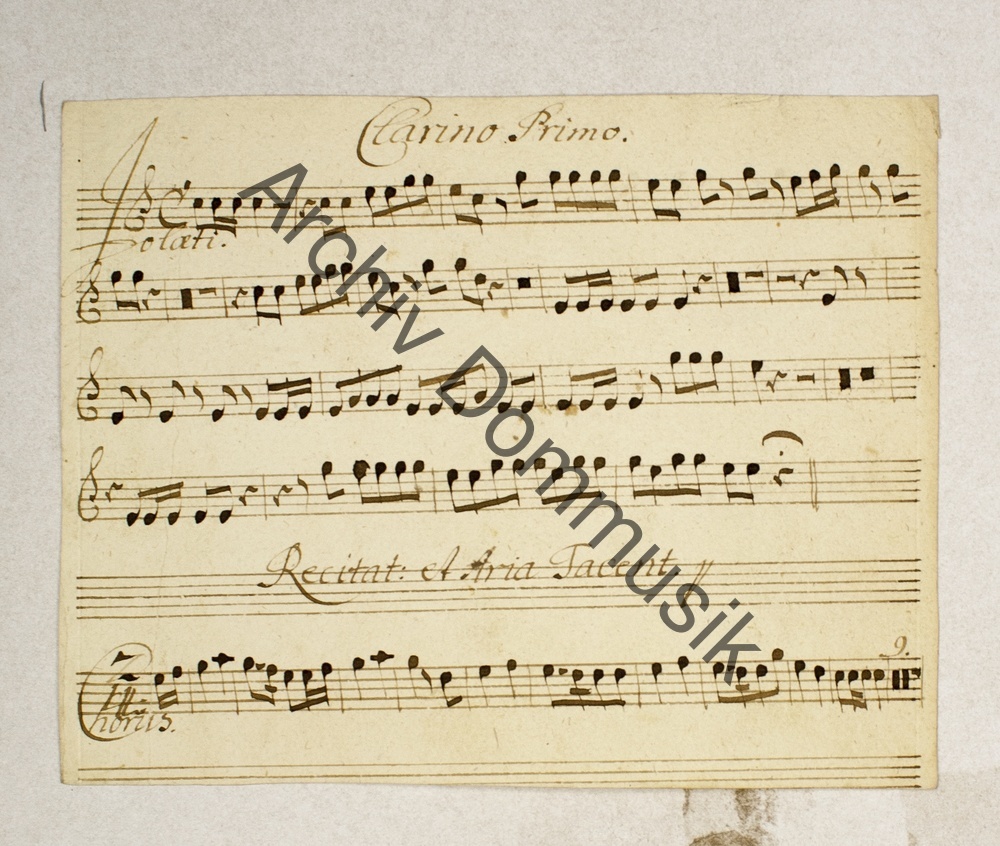 Clarino Primo.
Solæti.
Recitat: et Aria Tacent
9.
Chorus.
Archiv Dommusik